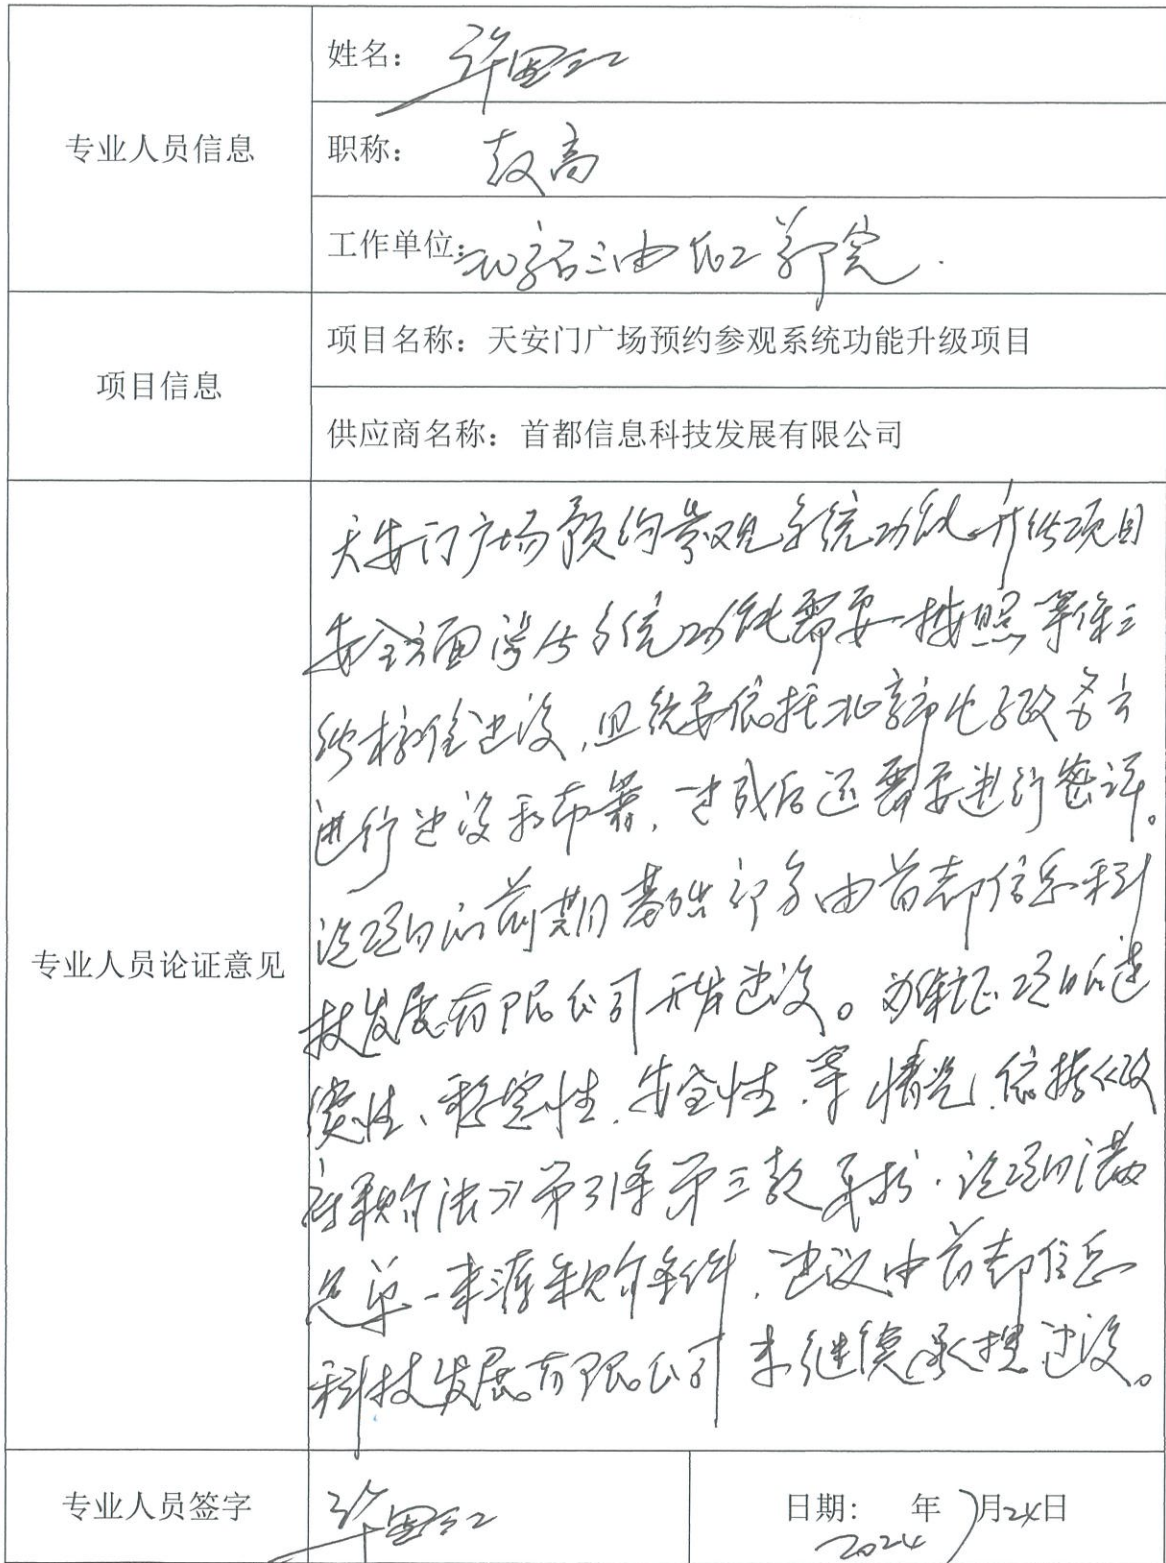 专业人员信息
姓名:
职称: 教高
工作单位: 北京石油化工学院.
项目信息
项目名称: 天安门广场预约参观系统功能升级项目
供应商名称: 首都信息科技发展有限公司
专业人员论证意见
天安门广场预约参观系统功能升级项目
安全方面 系统功能需要按照等保三
级标准建设, 且统要依托北京市电子政务云
进行建设和布署, 建成后还需要进行密评。
该项目的前期基础部分由首都信息科
技发展有限公司开发建设。为保证项目后连
续性、稳定性、安全性、等情况, 依据《政
府采购法》第31条第三款 该项目满
足单一来源采购条件, 建议由首都信息
科技发展有限公司来继续承担建设。
专业人员签字
日期: 2024年7月24日